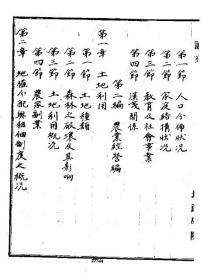 第一節　人口分佈狀況
第二節　家庭經濟狀況
第三節　教育及社會事業
第四節　漢羌關係
第二編　農業經營編
第一章　土地利用
第一節　土地種類
第二節　森林之破壞及其影响
第三節　土地利用概況
第四節　農家副業
第二章　地權分配與租佃制度之概況